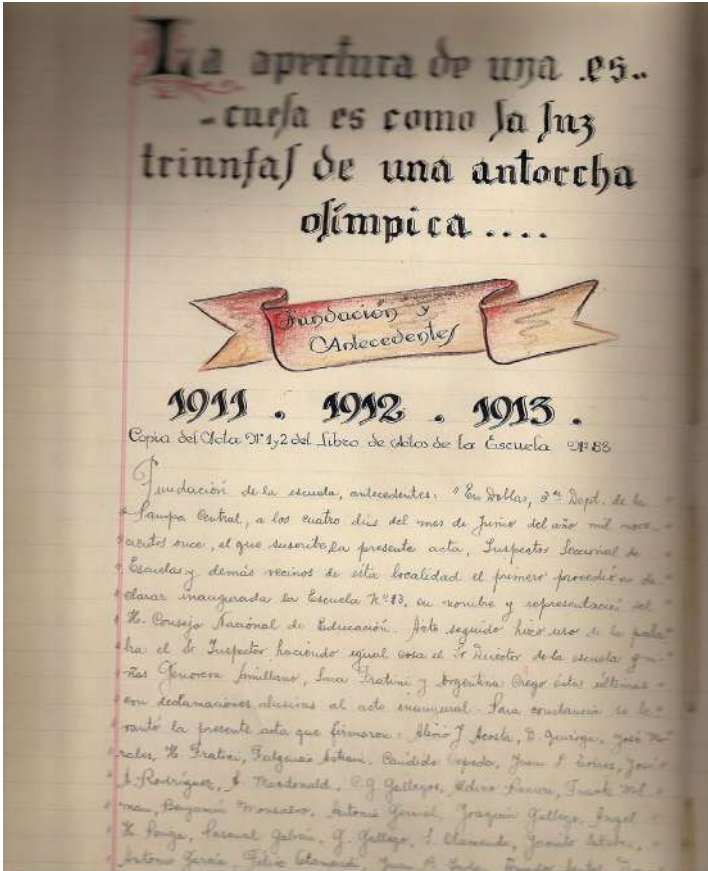 La apertura de una es..
-cuela es como la luz
triunfal de una antorcha
olímpica ....
Fundación y
Antecedentes
1911 . 1912 . 1913 .
Copia del Acta Nº 1 y 2 del Libro de Actos de la Escuela Nº 83
Fundación de la escuela, antecedentes: "En Doblas, 3er Dept. de la
" Pampa Central, a los cuatro dias del mes de Junio del año mil nove-
" cientos once, el que suscribe la presente acta, Inspector Seccional de
" Escuelas y demás vecinos de esta localidad el primero procedió a de
" clarar inaugurada la Escuela Nº 83, en nombre y representación del
" H. Consejo Nacional de Educación. Acto seguido hizo uso de la pala
" bra el Sr Inspector haciendo igual cosa el Sr Director de la escuela y ni-
" ñas Genoveva Similiano, Fratini y Argentina estas últimas
" con declamaciones alusivas al acto inaugural. Para constancia se le
" vantó la presente acta que firmaron: J. Acosta, D. Quiroga, José Mo
" rales, H. Fratini, Cándido Cepeda, Juan José
" A. Rodríguez, Mardonald, C. G. Gallegos, Frank
" man, Benjamín Antonio Joaquin Gallego, Angel
" Pascual Galván, G. Gallego,
" Antonio García, Juan